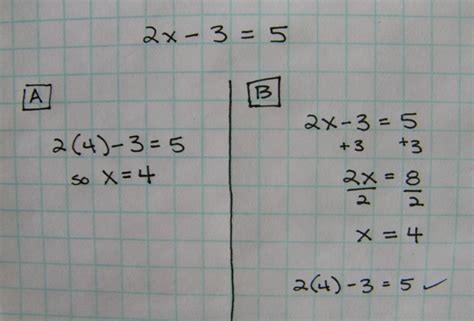 2x - 3 = 5
A
2(4) - 3 = 5
so x = 4
B
2x - 3 = 5
+3 +3
2x = 8
2 2
x = 4
2(4) - 3 = 5 ✓